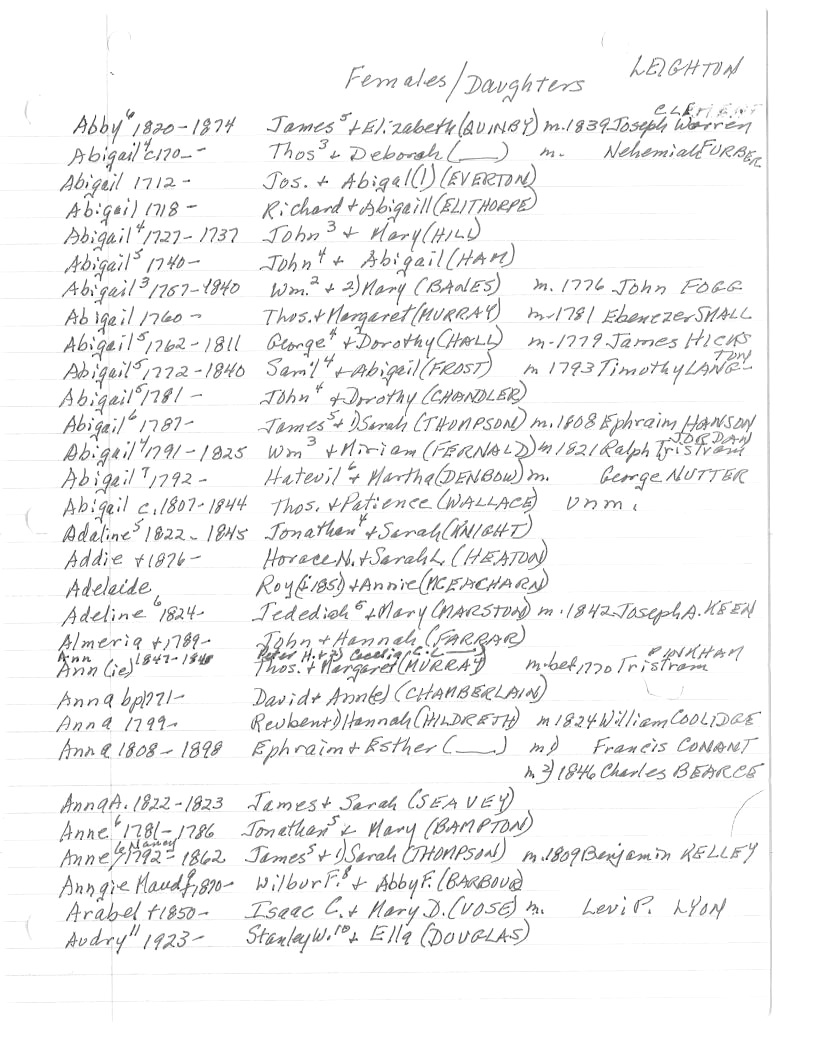 LEIGHTON
Females/Daughters
CLEMENT
Abby⁶ 1820-1874 James⁵ + Elizabeth (QUINBY) m. 1839 Joseph Warren
Abigail⁴ c170-- Thos³ + Deborah (___) m. Nehemiah FURBER
Abigail 1712- Jos. + Abigal (1) (EVERTON)
Abigail 1718- Richard + Abigaill (ELITHORPE)
Abigail⁴ 1727-1737 John³ + Mary (HILL)
Abigail⁵ 1740- John⁴ + Abigail (HAM)
Abigail³ 1757-1840 Wm.² + 2) Mary (BANES) m. 1776 John FOGG
Abigail 1760- Thos. + Margaret (MURRAY) m-1781 Ebenezer SMALL
Abigail⁵ 1762-1811 George⁴ + Dorothy (HALL) m-1779 James HICKS
Abigail⁵ 1772-1840 Saml⁴ + Abigail (FROST) m 1793 Timothy LANG-
TON
Abigail⁵ 1781- John⁴ + Dorothy (CHANDLER)
Abigail⁶ 1787- James⁵ + 1) Sarah (THOMPSON) m. 1808 Ephraim HANSON
JORDAN
Abigail⁴ 1791-1825 Wm³ + Miriam (FERNALD) m 1821 Ralph Tristram
Abigail⁷ 1792- Hatevil⁶ + Martha (DENBOW) m. George NUTTER
Abigail c.1807-1844 Thos. + Patience (WALLACE) Unm.
Adaline⁵ 1822-1845 Jonathan⁴ + Sarah (KNIGHT)
Addie +1876- Horace N. + Sarah L. (HEATON)
Adelaide Roy (+1851) + Annie (MCEACHARN)
Adeline⁶ 1824- Jedediah⁵ + Mary (MARSTON) m. 1842 Joseph A. KEEN
Almeria +1789- John + Hannah (FARRAR)
Ann 1847-1848 Peter H. + 2) Cecelia C. (___)
PINKHAM
Ann (ie) Thos. + Margaret (MURRAY) m. bef 1770 Tristram
Anna bp1771- David + Ann(e) (CHAMBERLAIN)
Anna 1799- Reuben + 1) Hannah (HILDRETH) m 1824 William COOLIDGE
Anna 1808-1898 Ephraim + Esther (___) m1) Francis CONANT
m 2) 1846 Charles BEARCE
Anna A. 1822-1823 James + Sarah (SEAVEY)
Anne⁶ 1781-1786 Jonathan⁵ + Mary (BAMPTON)
Anne⁶/Nancy 1792-1862 James⁵ + 1) Sarah (THOMPSON) m. 1809 Benjamin KELLEY
Anngie Maud⁹ 1870- Wilbur F.⁸ + Abby F. (BARBOUR)
Arabel +1850- Isaac C. + Mary D. (VOSE) m. Levi P. LYON
Audry¹¹ 1923- Stanley W.¹⁰ + Ella (DOUGLAS)